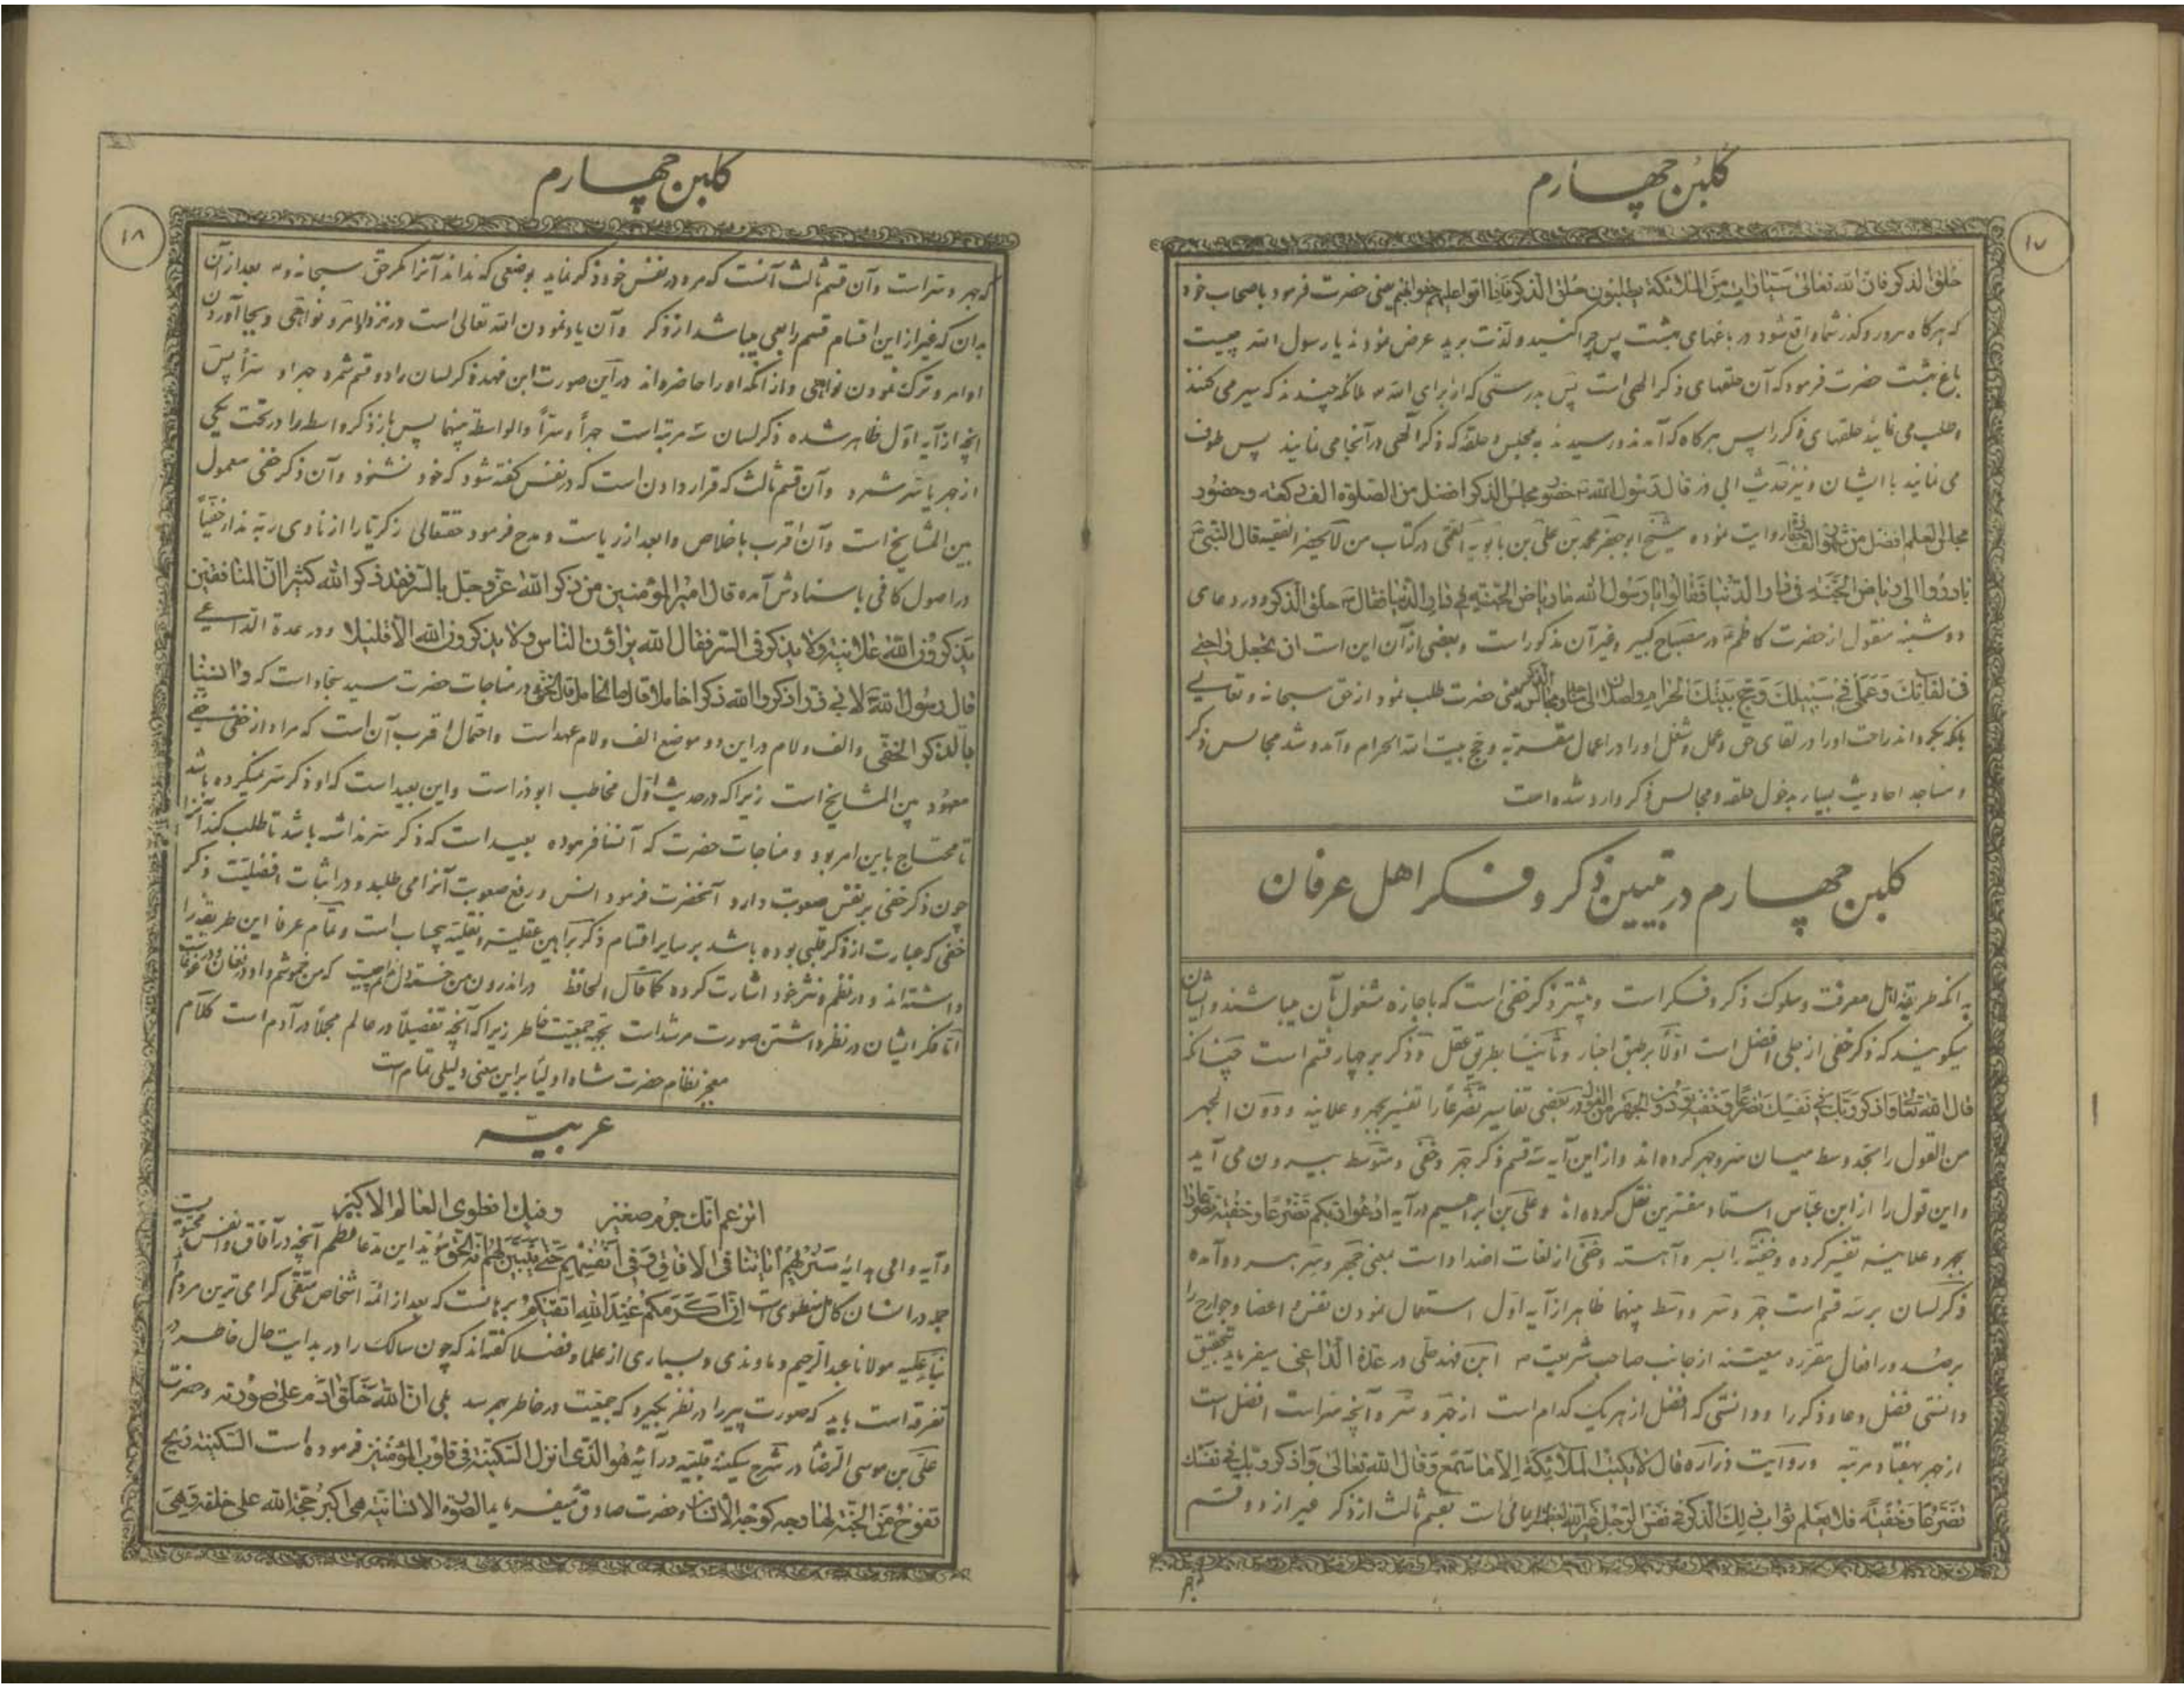 گلبن چهارم
۱۷
حلق الذکر فان الله تعالی سیارات من الملائکة یطلبون حلق الذکر فاذا اتوا علیهم حفوا بهم یعنی حضرت فرمود باصحاب خود
که هرگاه مرور و گذر شما واقع شود در باغهای بهشت پس چرا کنید و لذت برید عرض نمودند یا رسول الله چیست
باغ بهشت حضرت فرمود که آن حلقهای ذکر الهی است پس بدرستی که از برای الله ملائکه چندند که سیر می کنند
و طلب می نمایند حلقهای ذکر را پس هرگاه که آمدند و رسیدند به مجلس و حلقه که ذکر الهی در آنجا می نمایند پس طوف
می نمایند با ایشان و نیز حدیث ابی ذر قال رسول الله حضور مجلس الذکر افضل من الصلوة الف رکعة و حضور
مجالس العلم افضل من روایت نموده شیخ ابو جعفر محمد بن علی بن بابویه القمی در کتاب من لا یحضر الفقیه قال النبی ص
بادروا الی ریاض الجنة فی دار الدنیا فقالوا یا رسول الله ما ریاض الجنة فی دار الدنیا فقال حلق الذکر و در دعای
دوشنبه منقول از حضرت کاظم در مصباح کبیر و غیر آن مذکور است و بعضی از آن این است ان تجعل راحتی
فی لقائک و عملی فی سبیلک و حج بیتک الحرام و اختلافی الی یعنی حضرت طلب نمود از حق سبحانه و تعالی
بلکه بگرداند راحت او را در لقای حق و عمل و شغل او را در اعمال مقربه و حج بیت الله الحرام و آمد و شد مجالس ذکر
و مساجد احادیث بسیار بدخول حلقه و مجالس ذکر وارد شده است
گلبن چهارم در تبیین ذکر و فکر اهل عرفان
بدانکه طریقه اهل معرفت و سلوک ذکر و فکر است و بیشتر ذکر خفی است که باجازه مشغول بآن میباشند و ایشان
میگویند که ذکر خفی از جلی افضل است اولاً بر طبق اخبار و ثانیاً بطریق عقل و ذکر بر چهار قسم است چنانکه
قال الله تعالی و اذکر ربک فی نفسک تضرعاً و خفیة و دون الجهر من القول در بعضی تفاسیر تضرعاً را تفسیر بجهر و علانیه و دون الجهر
من القول را بحد وسط میان سر و جهر کرده اند و از این آیه سه قسم ذکر جهر و خفی و متوسط بیرون می آید
و این قول را از ابن عباس استاد مفسرین نقل کرده اند و علی بن ابراهیم در آیه ادعوا ربکم تضرعاً و خفیة تضرعاً را
بجهر و علانیه تفسیر کرده و خفیه را بسر و آهسته و خفی از لغات اضداد است بمعنی جهر و سر هر دو آمده
ذکر لسان بر سه قسم است جهر و سر و وسط بینهما ظاهر از آیه اول استعمال نمودن نفس و اعضا و جوارح را
در افعال مقرره معینه از جانب صاحب شریعت ابن فهد حلی در عدة الداعی میفرماید بتحقیق
دانستی فضل دعا و ذکر را و دانستی که افضل از هر یک کدام است از جهر و سر و آنچه سر است افضل است
از جهر بهفتاد مرتبه و روایت زراره قال لا یکتب الملائکة الا ما تسمع و قال الله تعالی و اذکر ربک فی نفسک
تضرعاً و خفیة فلا یعلم ثواب ذلک الذکر فی نفس الرجل غیر الله ایمائی است بقسم ثالث از ذکر غیر از دو قسم
گلبن چهارم
۱۸
که جهر و سر است و آن قسم ثالث آنست که مرد در نفس خود ذکر نماید بوضعی که نداند آنرا مگر حق سبحانه و بعد از آن
بدان که غیر از این اقسام قسم رابعی میباشد از ذکر و آن یاد نمودن الله تعالی است در نزد اوامر و نواهی و بجا آوردن
اوامر و ترک نمودن نواهی و از آنکه او را حاضر داند در این صورت ابن فهد ذکر لسان را دو قسم شمرد جهر او سراً پس
آنچه از آیه اول ظاهر شده ذکر لسان سه مرتبه است جهراً و سراً و الواسطة بینهما پس باز ذکر واسطه را در تحت یکی
از جهر یا سر شمرد و آن قسم ثالث که قرار دادن است که در نفس گفته شود که خود نشنود و آن ذکر خفی معمول
بین المشایخ است و آن اقرب باخلاص و ابعد از ریاست و مدح فرمود حقتعالی زکریا را اذ نادی ربه نداء خفیاً
در اصول کافی باسنادش آمده قال امیر المؤمنین من ذکر الله عز و جل بالسر فقد ذکر الله کثیراً ان المنافقین
یذکرون الله علانیة و لا یذکروه فی السر فقال الله یراؤن الناس و لا یذکرون الله الا قلیلا و در عدة الداعی
قال رسول الله لابی ذر اذکروا الله ذکراً خاملاً قال ما الخامل قال الخفی و در مناجات حضرت سید سجاد است که و انسنا
بالذکر الخفی و الف و لام در این دو موضع الف و لام عهد است و احتمال اقرب آن است که مراد از خفی خفی
معهود بین المشایخ است زیرا که در حدیث اول مخاطب ابوذر است و این بعید است که او ذکر سر نمیکرده باشد
تا محتاج باین امر بود و مناجات حضرت که آنسنا فرموده بعید است که ذکر سر نداشته باشد تا طلب کند آنرا
چون ذکر خفی بر نفس صعوبت دارد آنحضرت فرمود انس و رفع صعوبت آنرا می طلبد و در اثبات افضلیت ذکر
خفی که عبارت از ذکر قلبی بوده باشد بر سایر اقسام ذکر براهین عقلیه و نقلیه بیحساب است و تمام عرفا این طریقه را
داشته اند و در نظم و نثر خود اشارت کرده کما قال الحافظ در اندرون من خسته دل ندانم کیست که من خموشم و او در فغان و در غوغاست
اما فکر ایشان در نظر داشتن صورت مرشد است بجهة جمعیت خاطر زیرا که آنچه تفصیلاً در عالم مجملاً در آدم است کلام
معجز نظام حضرت شاه اولیا بر این معنی دلیلی تمام است
عربیه
اتزعم انک جرم صغیر و فیک انطوی العالم الاکبر
و آیه وافی هدایه سنریهم آیاتنا فی الآفاق و فی انفسهم حتی یتبین لهم انه الحق مؤید این مدعا آنچه در آفاق و انفس محتویست
در انسان کامل منطوی است ان اکرمکم عند الله اتقیکم برهانست که بعد از ائمه اشخاص متقی گرامی ترین مردم
بنا علیه مولانا عبد الرحیم دماوندی و بسیاری از علما و فضلا گفته اند که چون سالک را در بدایت حال خاطر در
تفرقه است باید که صورت پیر را در نظر بگیرد که جمعیت در خاطر بهم رسد بلی ان الله خلق آدم علی صورته و حضرت
علی بن موسی الرضا در شرح سکینه قلبیه در آیه هو الذی انزل السکینة فی قلوب المؤمنین فرموده است السکینة ریح
تفوح من الجنة لها وجه کوجه الانسان و حضرت صادق میفرماید الصورة الانسانیة هی اکبر حجة الله علی خلقه و هی